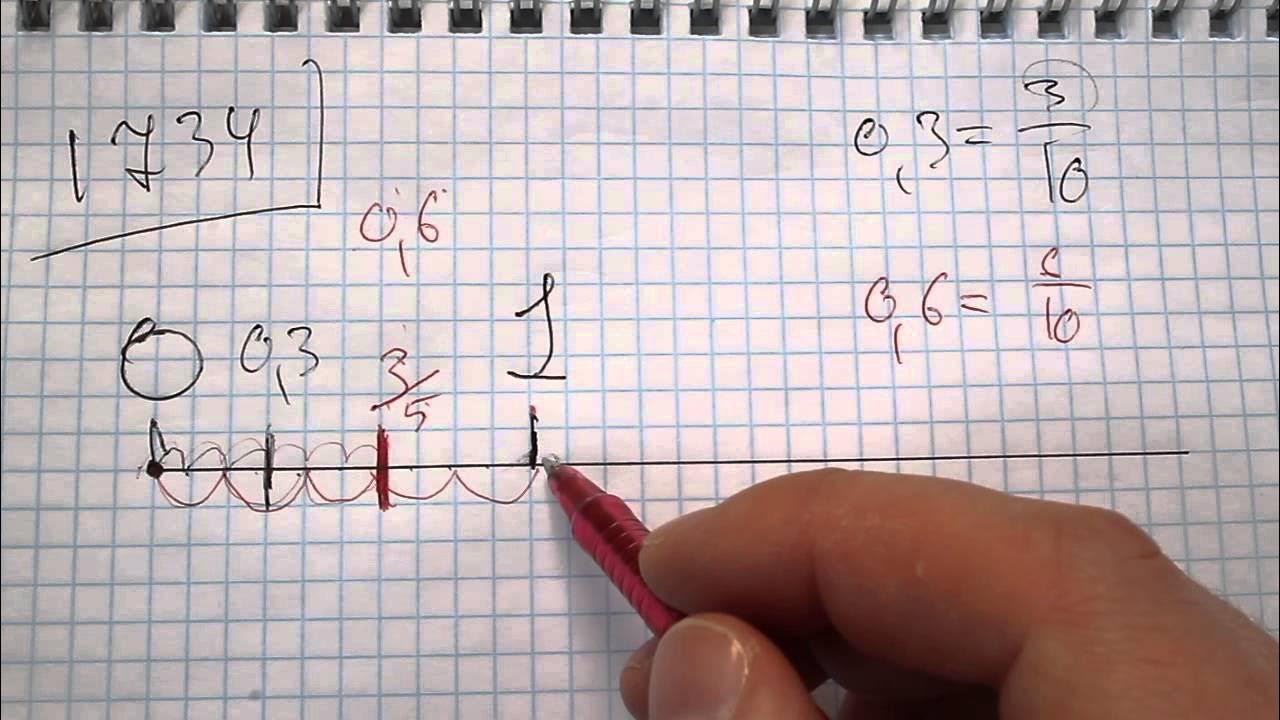 1734
0,3 = 3/10
0,6
0,6 = 6/10
0 0,3 3/5 1